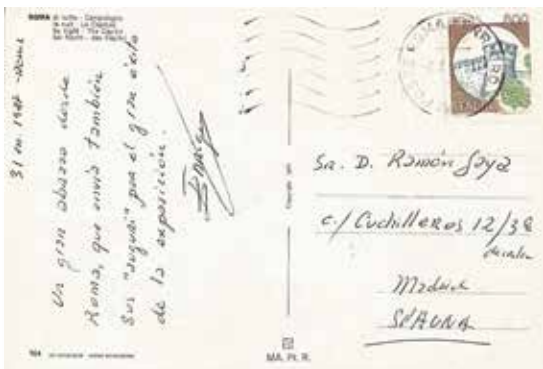 ROMA di notte - Campidoglio
la nuit - Le Capitole
by night - The Capitol
bei Nacht - das Kapitol
31 en. 1987 - ROMA
Un gran abrazo desde
Roma, que envía también
sus "auguri" por el gran éxito
de la exposición.
600
ITALIA
Sr. D. Ramón Gaya
c/ Cuchilleros 12/3º
Madrid
SPAGNA
164
MA. Pt. R.